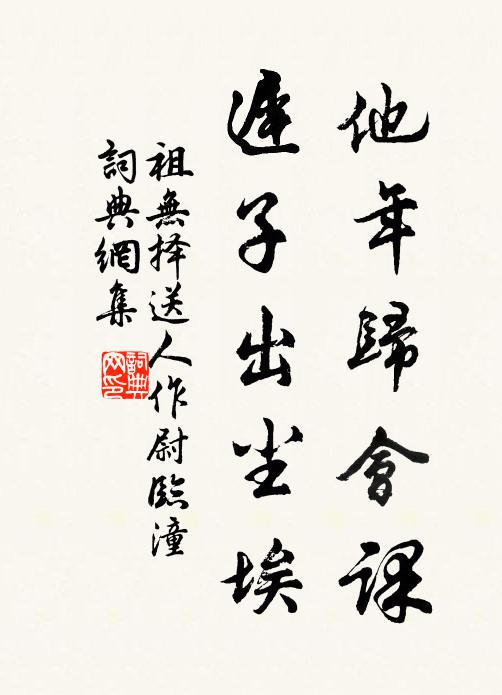 他年歸會課
遲子出尘埃
祖無择送人作尉臨潼
詞典網集
詞典网印